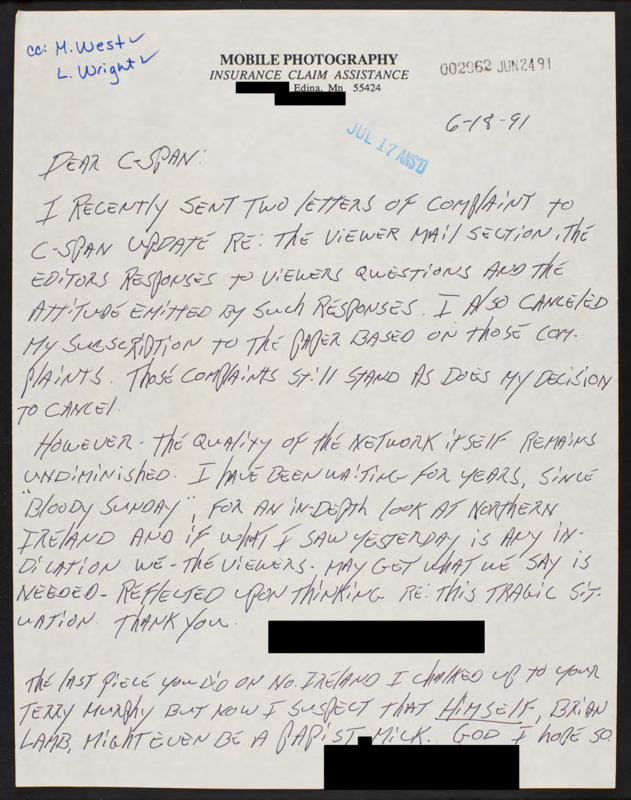 cc: M. West ✓
L. Wright ✓
MOBILE PHOTOGRAPHY
INSURANCE CLAIM ASSISTANCE
Edina, Mn 55424
002962 JUN 24 91
6-18-91
JUL 17 ANS'D
DEAR C-SPAN:
I RECENTLY SENT TWO LETTERS OF COMPLAINT TO
C-SPAN UPDATE RE: THE VIEWER MAIL SECTION, THE
EDITORS RESPONSES TO VIEWERS QUESTIONS AND THE
ATTITUDE EMITTED BY SUCH RESPONSES. I ALSO CANCELED
MY SUBSCRIPTION TO THE PAPER BASED ON THOSE COM-
PLAINTS. THOSE COMPLAINTS STILL STAND AS DOES MY DECISION
TO CANCEL.
HOWEVER - THE QUALITY OF THE NETWORK ITSELF REMAINS
UNDIMINISHED. I HAVE BEEN WAITING FOR YEARS, SINCE
"BLOODY SUNDAY", FOR AN IN-DEPTH LOOK AT NORTHERN
IRELAND AND IF WHAT I SAW YESTERDAY IS ANY IN-
DICATION WE - THE VIEWERS - MAY GET WHAT WE SAY IS
NEEDED - REFLECTED UPON THINKING RE: THIS TRAGIC SIT-
UATION. THANK YOU.
THE LAST PIECE YOU DID ON NO. IRELAND I CHALKED UP TO YOUR
TERRY MURPHY BUT NOW I SUSPECT THAT HIMSELF, BRIAN
LAMB, MIGHT EVEN BE A PAPIST MICK. GOD I HOPE SO.